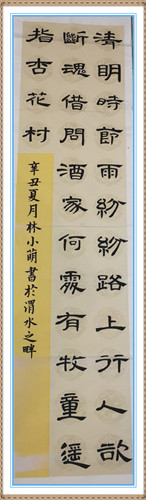 清明時節雨紛紛路上行人欲
斷魂借問酒家何處有牧童遥
指杏花村
辛丑夏月林小萌書於渭水之畔